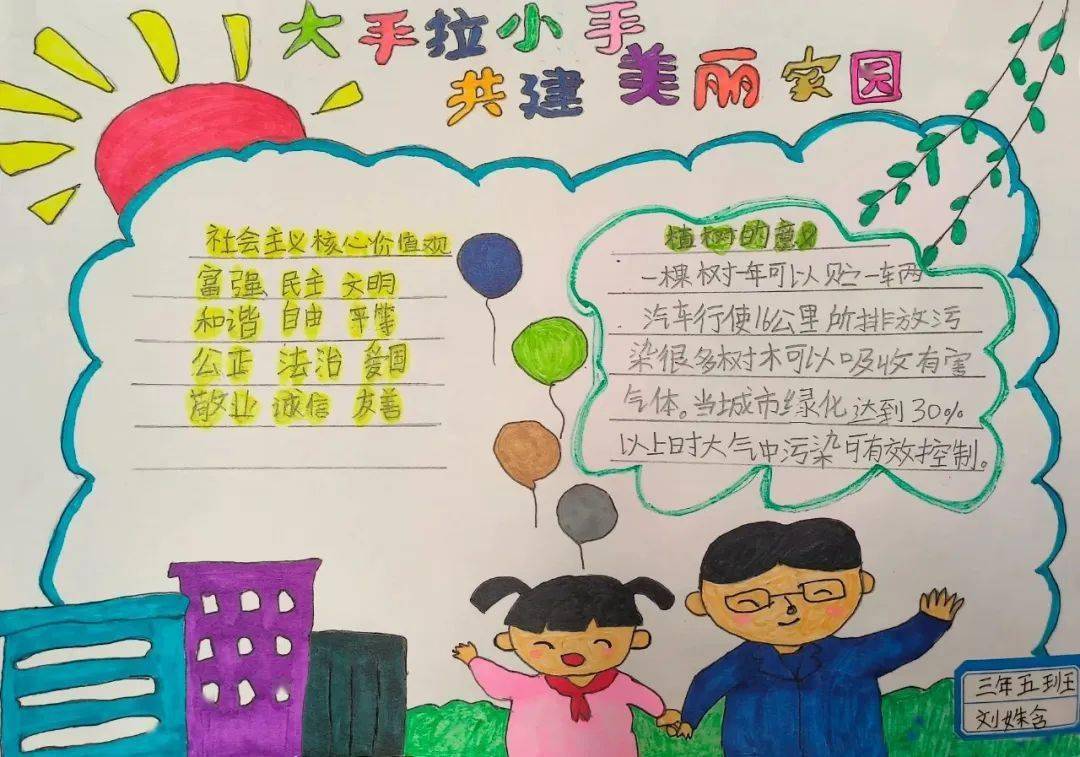 大手拉小手
共建美丽家园
社会主义核心价值观
富强 民主 文明
和谐 自由 平等
公正 法治 爱国
敬业 诚信 友善
植树的意义
一棵树一年可以贮一车两
汽车行使16公里所排放污
染很多树木可以吸收有害
气体。当城市绿化达到30%
以上时大气中污染可有效控制。
三年五班
刘姝含